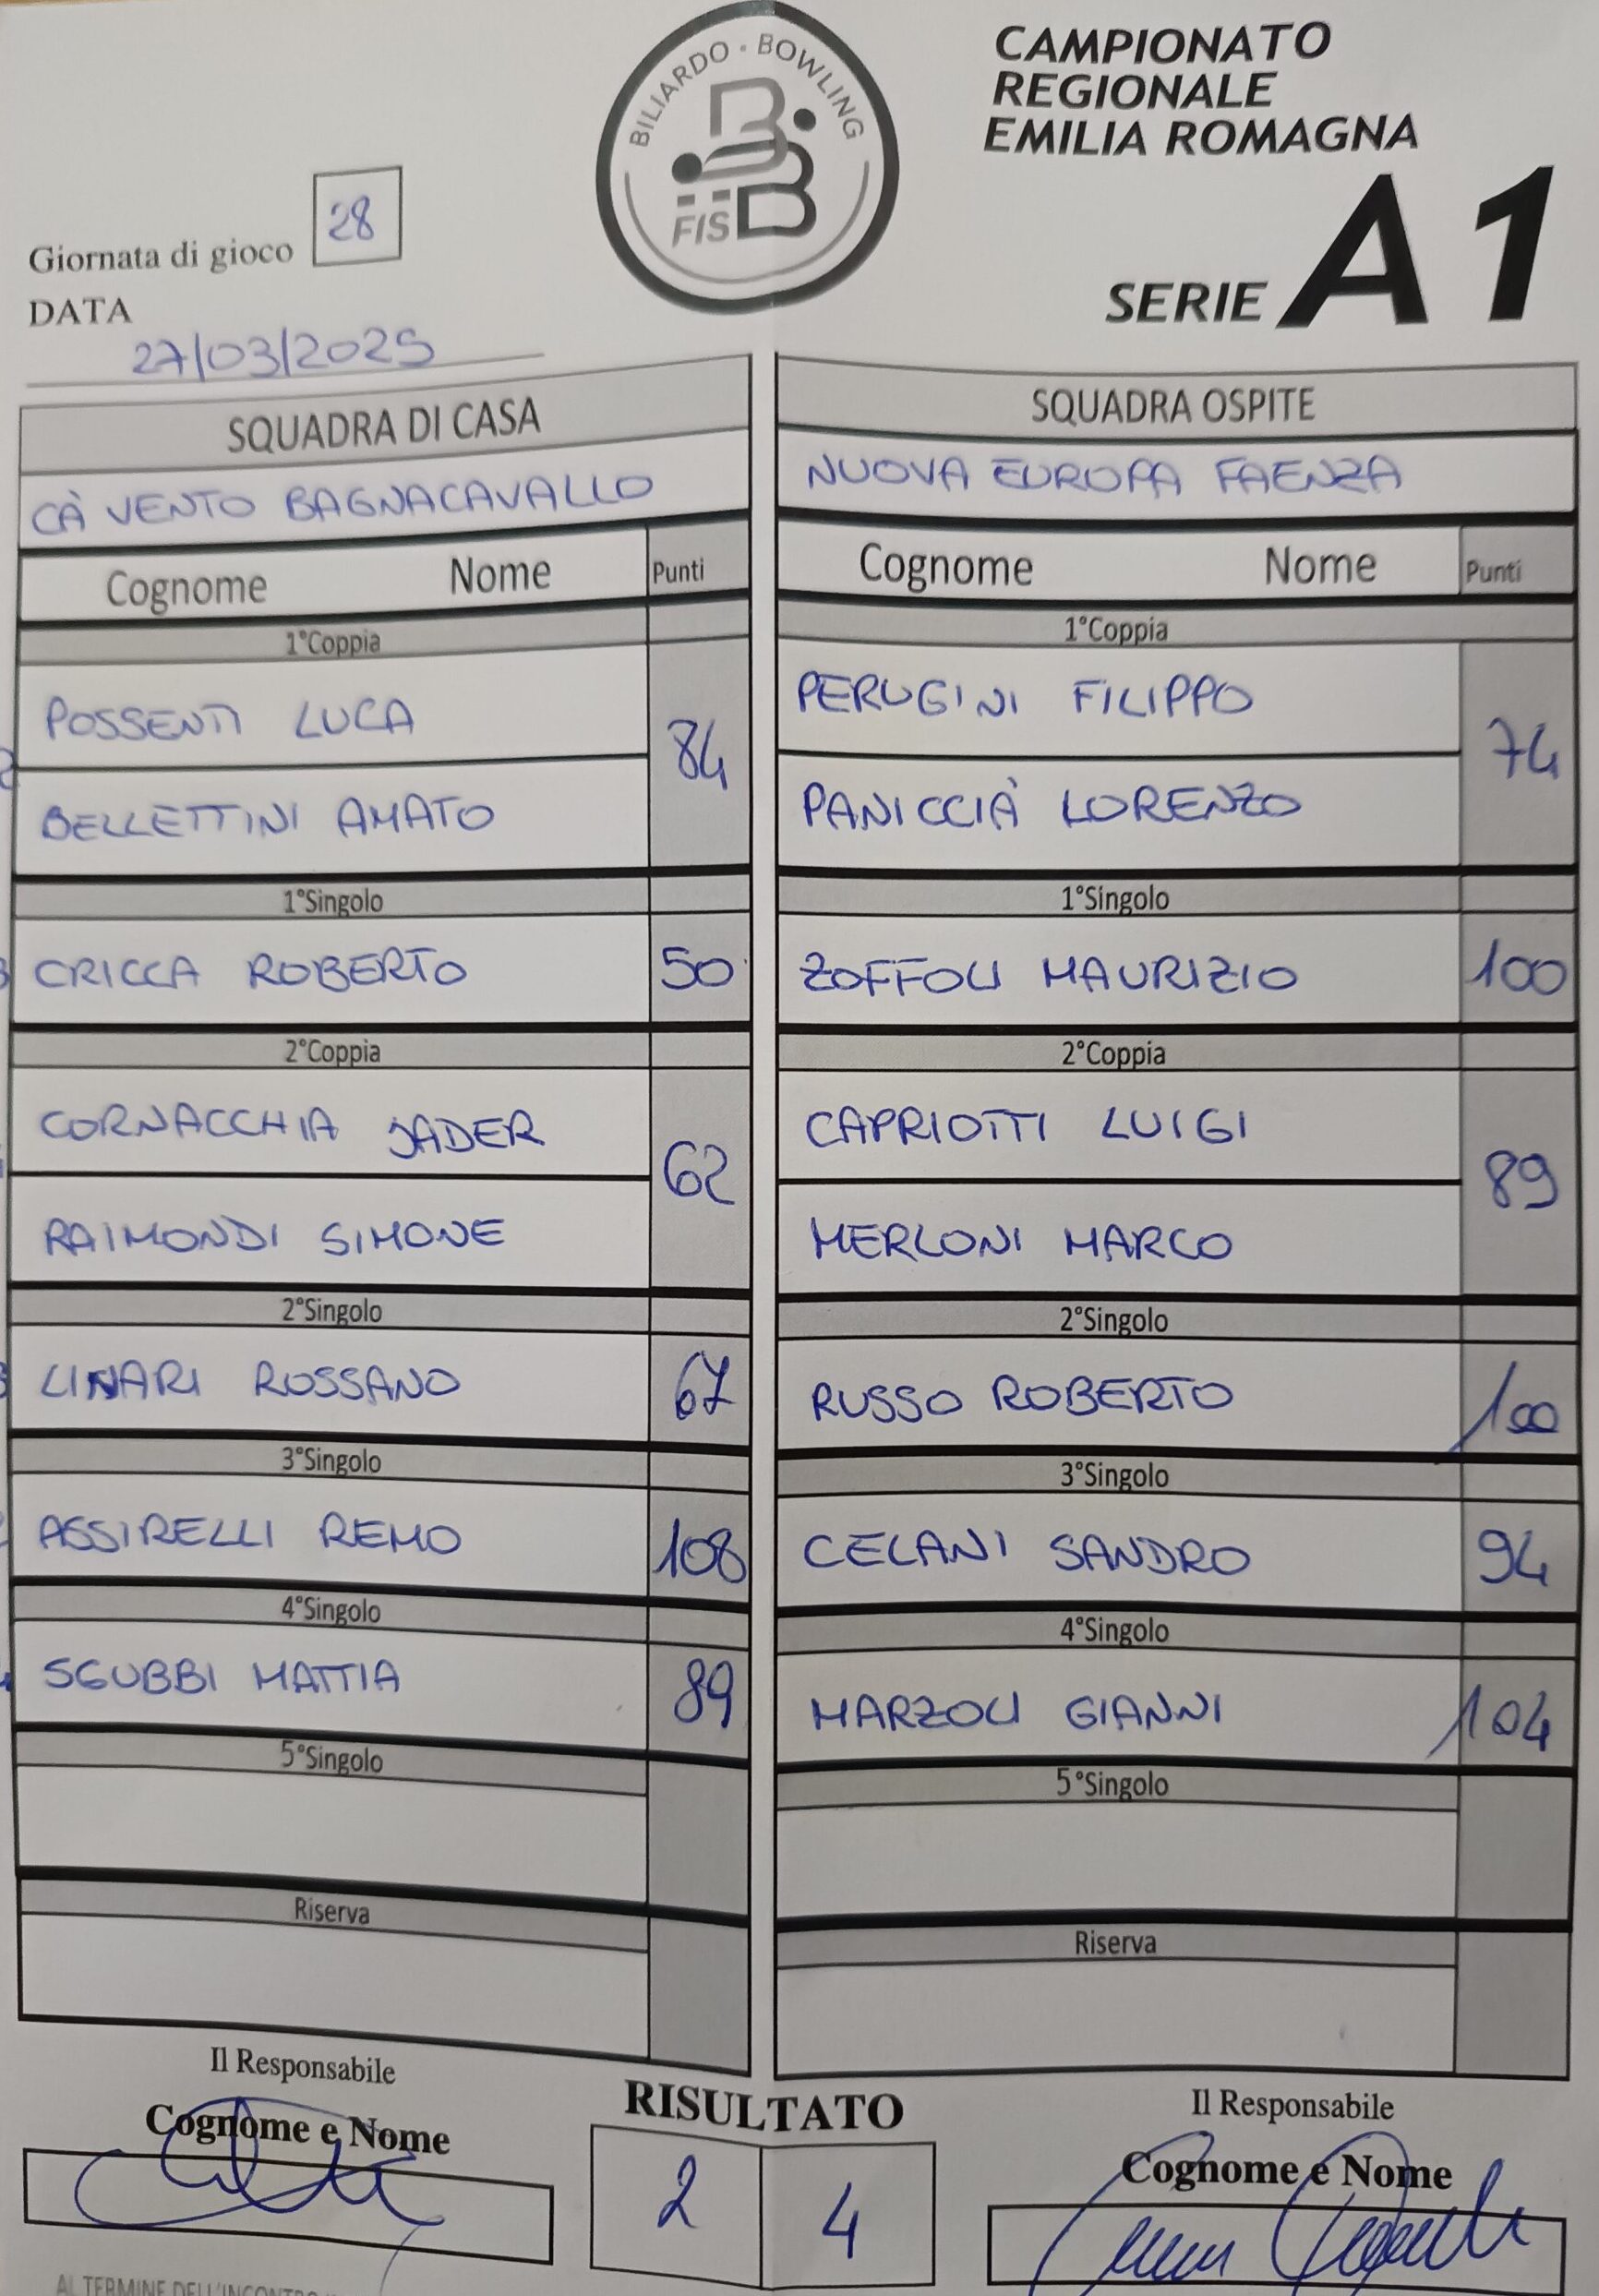 BILIARDO • BOWLING
FISBB
CAMPIONATO
REGIONALE
EMILIA ROMAGNA
SERIE A1
Giornata di gioco 28
DATA
27/03/2025
SQUADRA DI CASA
CÀ VENTO BAGNACAVALLO
Cognome Nome Punti
1°Coppia
POSSENTI LUCA
84
BELLETTINI AMATO
1°Singolo
CRICCA ROBERTO 50
2°Coppia
CORNACCHIA JADER
62
RAIMONDI SIMONE
2°Singolo
LINARI ROSSANO 67
3°Singolo
ASSIRELLI REMO 108
4°Singolo
SGUBBI MATTIA 89
5°Singolo
Riserva
Il Responsabile
Cognome e Nome
SQUADRA OSPITE
NUOVA EUROPA FAENZA
Cognome Nome Punti
1°Coppia
PERUGINI FILIPPO
74
PANICCIÀ LORENZO
1°Singolo
ZOFFOLI MAURIZIO 100
2°Coppia
CAPRIOTTI LUIGI
89
MERLONI MARCO
2°Singolo
RUSSO ROBERTO 100
3°Singolo
CELANI SANDRO 94
4°Singolo
MARZOLI GIANNI 104
5°Singolo
Riserva
RISULTATO
2 4
Il Responsabile
Cognome e Nome
AL TERMINE DELL'INCONTRO